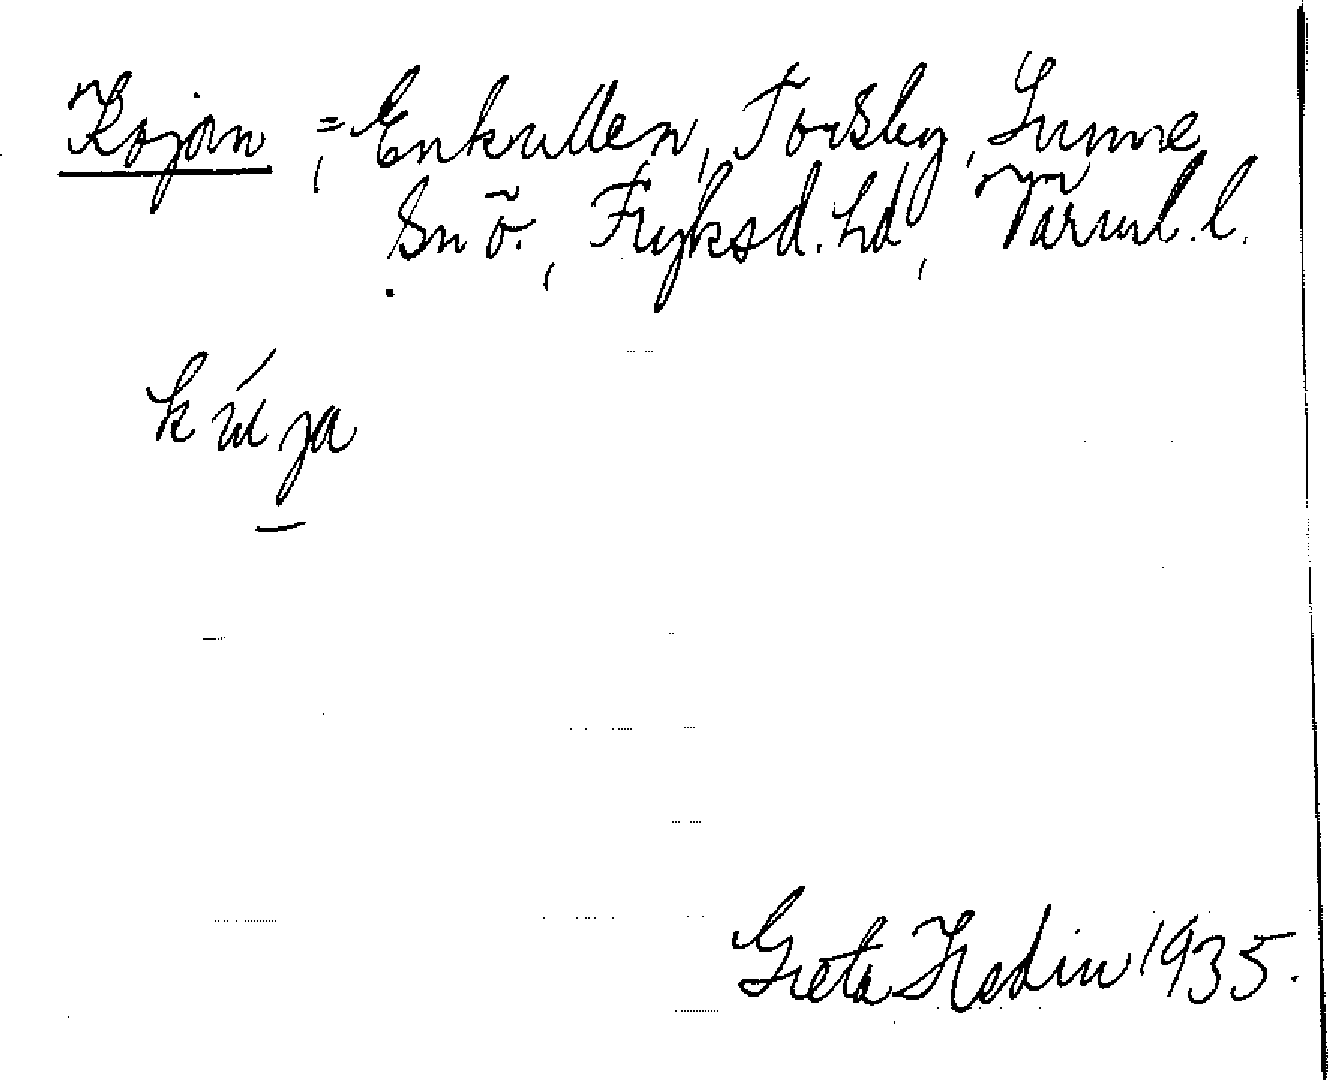 Kojan, = Enkullen, Torsby, Sunne
Sn ö., Fryksd. hd, Värml. l.
kúja
Greta Hedin 1935.